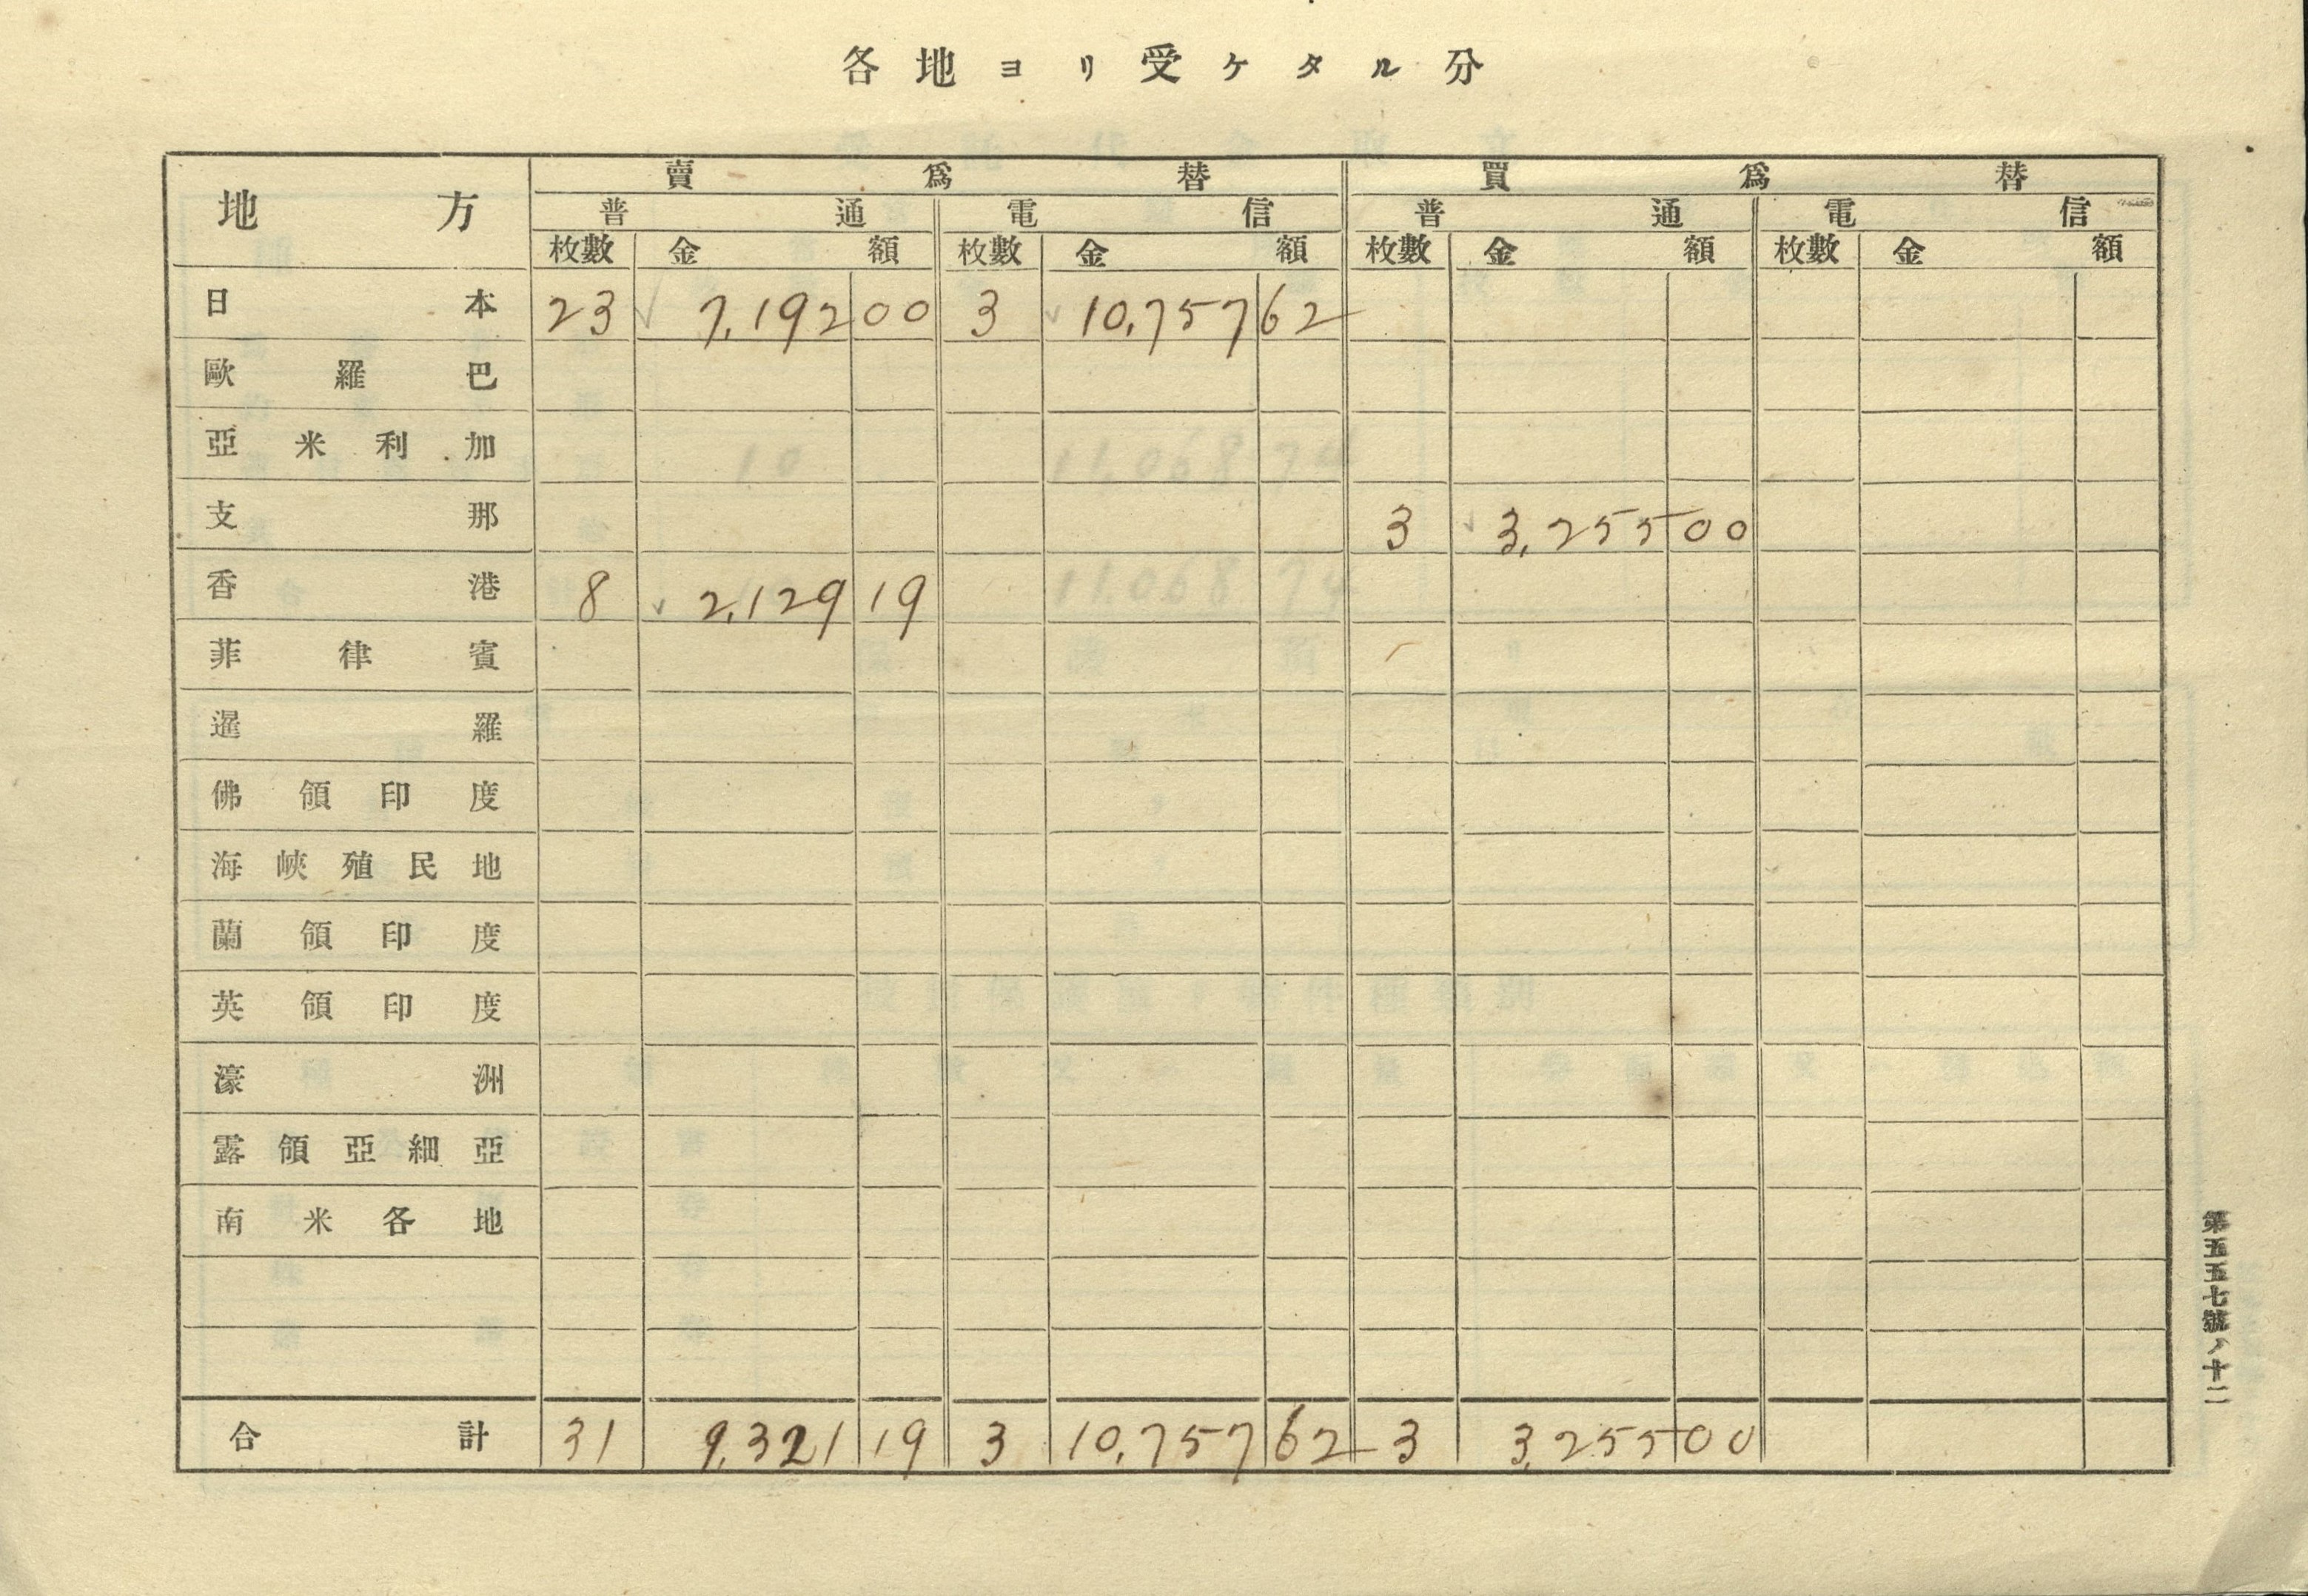 各地ヨリ受ケタル分
地方 賣爲替 買爲替
普通 電信 普通 電信
枚數 金額 枚數 金額 枚數 金額 枚數 金額
日本 23 7,192 00 3 10,757 62
歐羅巴
亞米利加
支那 3 3,255 00
香港 8 2,129 19
菲律賓
暹羅
佛領印度
海峽殖民地
蘭領印度
英領印度
濠洲
露領亞細亞
南米各地
合計 31 9,321 19 3 10,757 62 3 3,255 00
第五五七號ノ十二